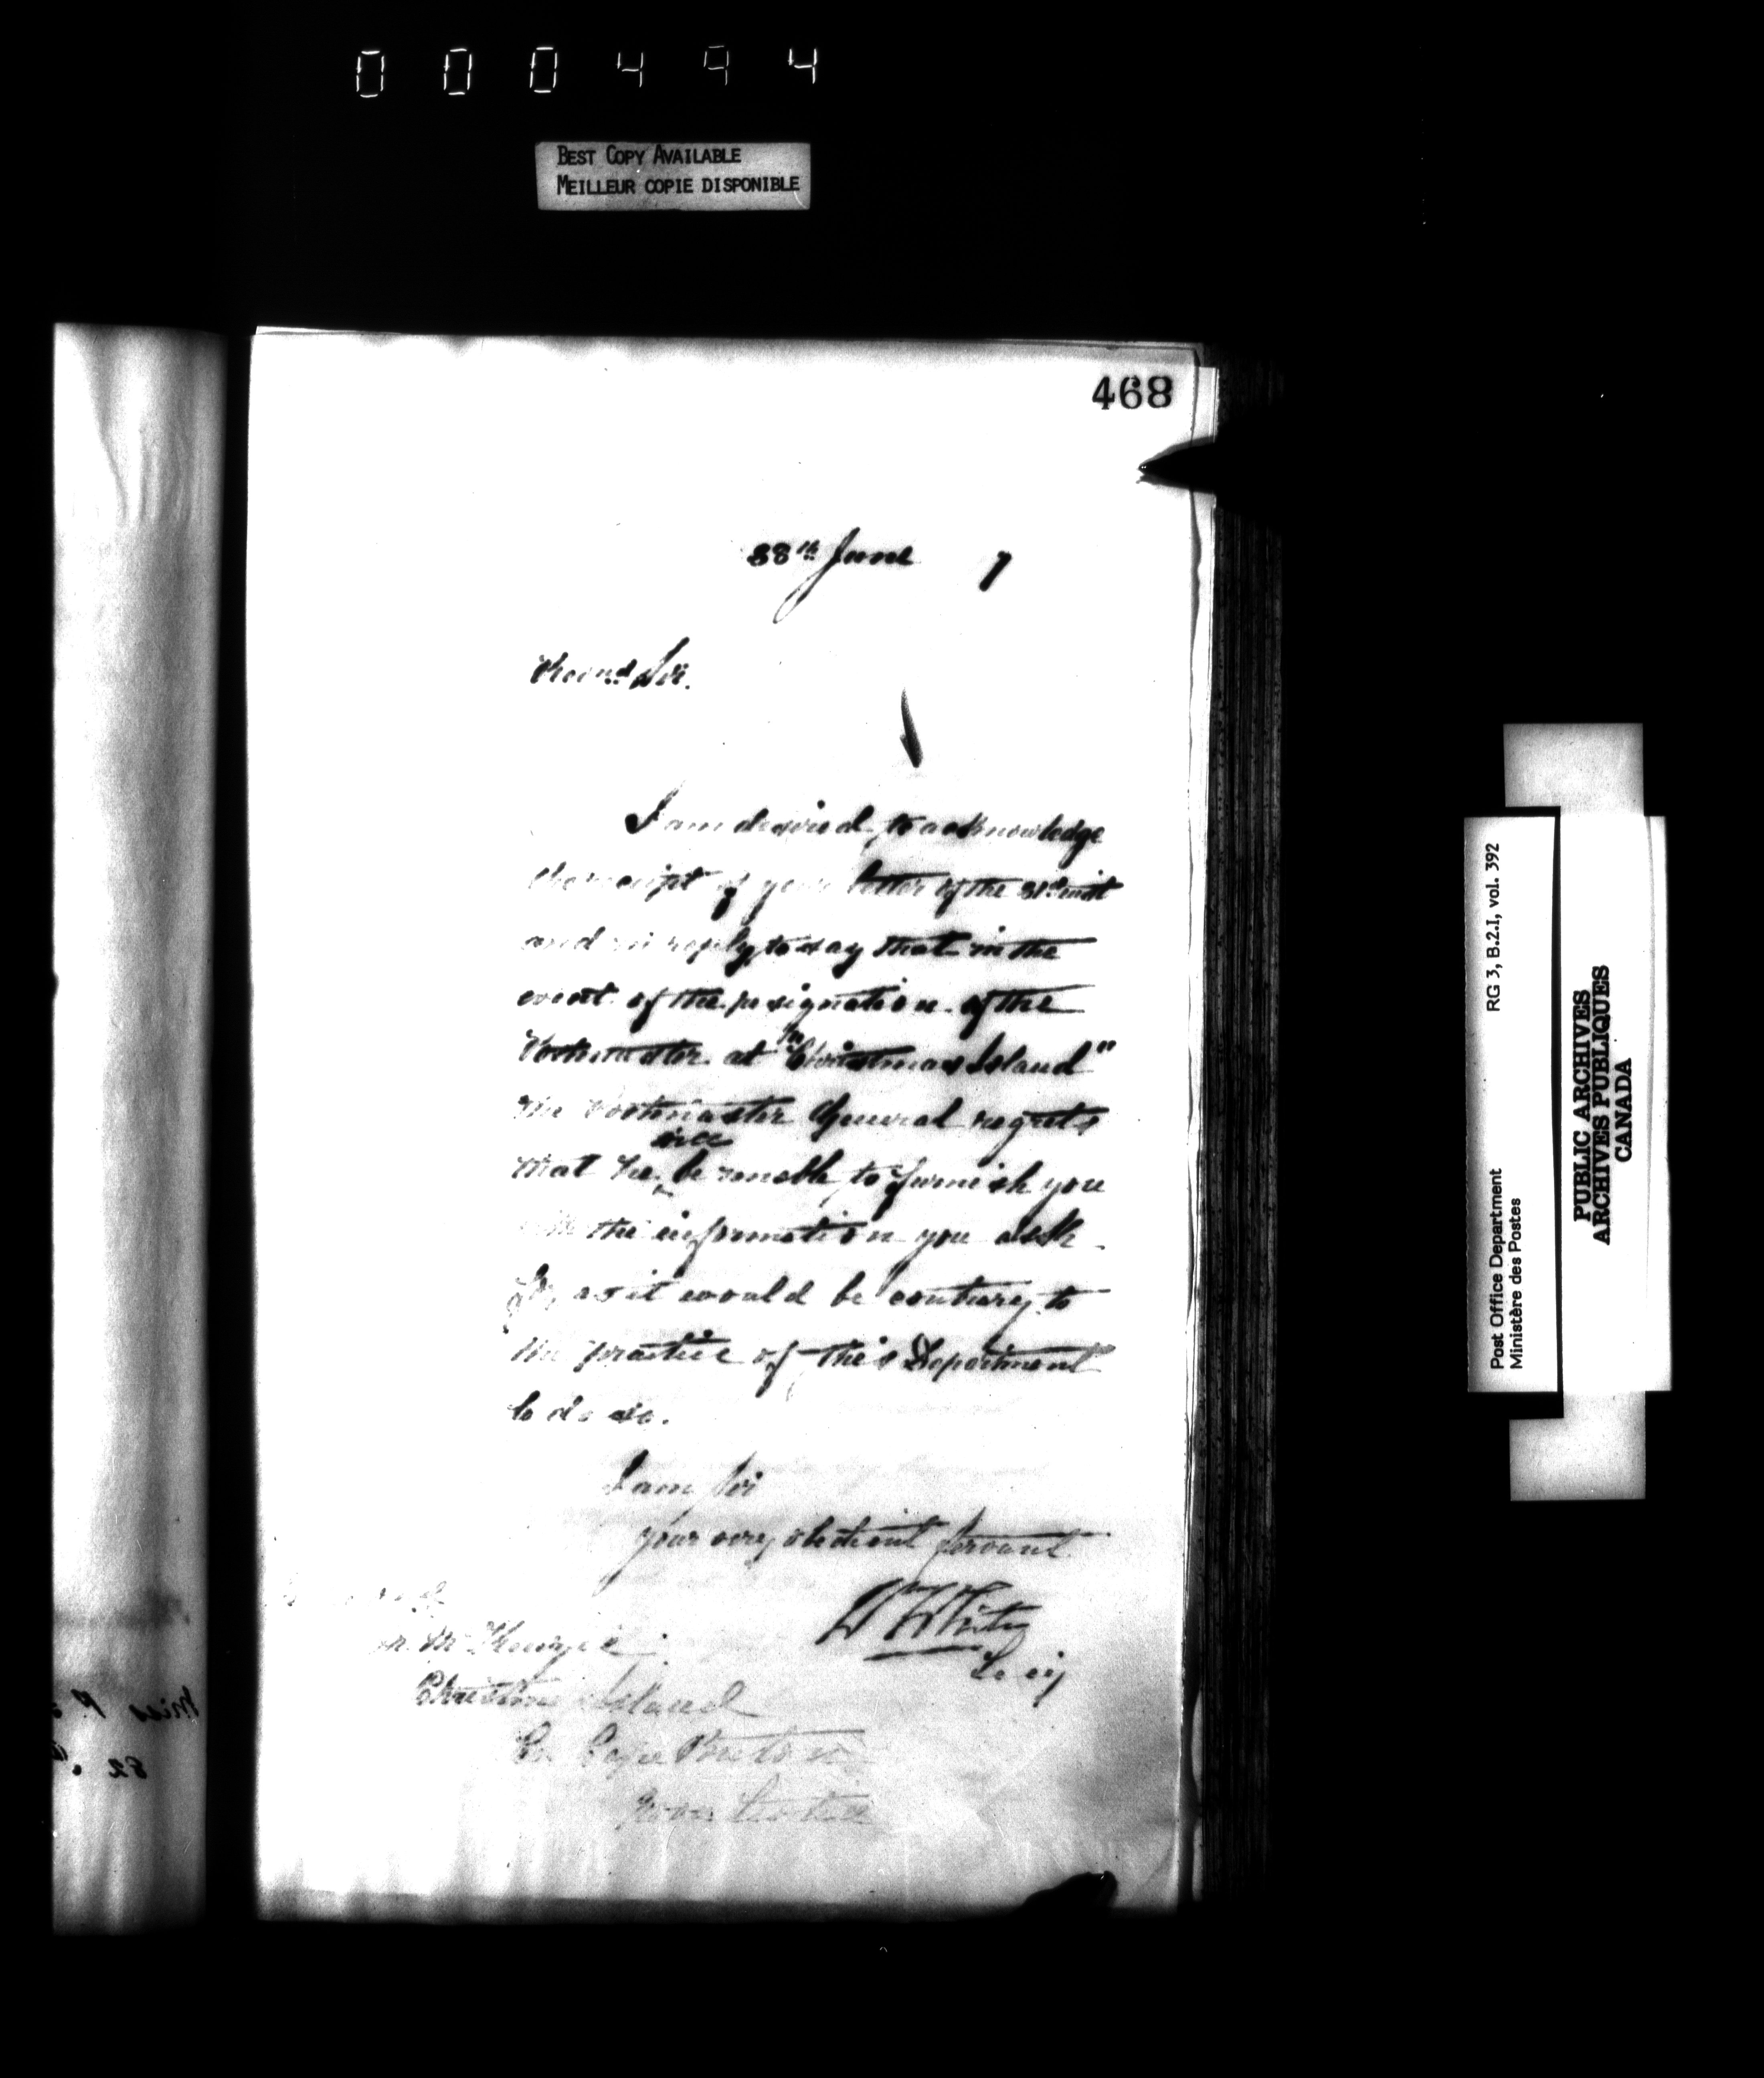 000494
BEST COPY AVAILABLE
MEILLEUR COPIE DISPONIBLE
468
28th June 7
Revnd Sir.
I am desired to acknowledge
the receipt of your letter of the 21st inst
and in reply to say that in the
event of the resignation of the
Postmaster at "Christmas Island"
the Postmaster General regrets
that he will be unable to furnish you
with the information you ask
for, as it would be contrary to
the practice of this Department
to do so.
I am Sir
Your very obedient Servant
W White
Secy
Christmas Island
Co. Cape Breton
Nova Scotia
Miss P.
82
RG 3, B.2.I, vol. 392
Post Office Department
Ministère des Postes
PUBLIC ARCHIVES
ARCHIVES PUBLIQUES
CANADA